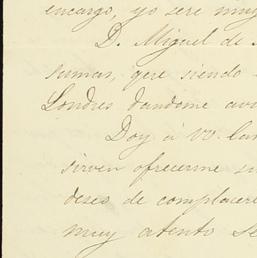 encargo, yo sere muy
D. Miguel de
sumas, qere siendo
Londres dandome avi
Doy á VV. las
sirven ofrecerme su
deseo de complacerl
muy atento Se